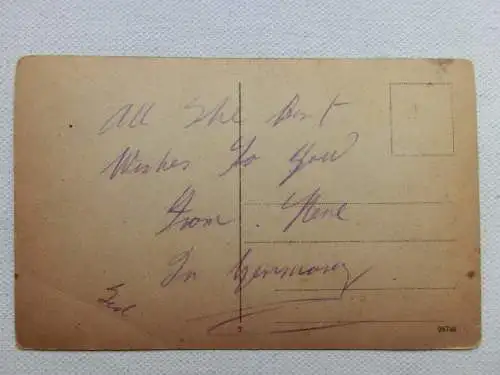 All The Best
Wishes To You
From Here
In Germany
3